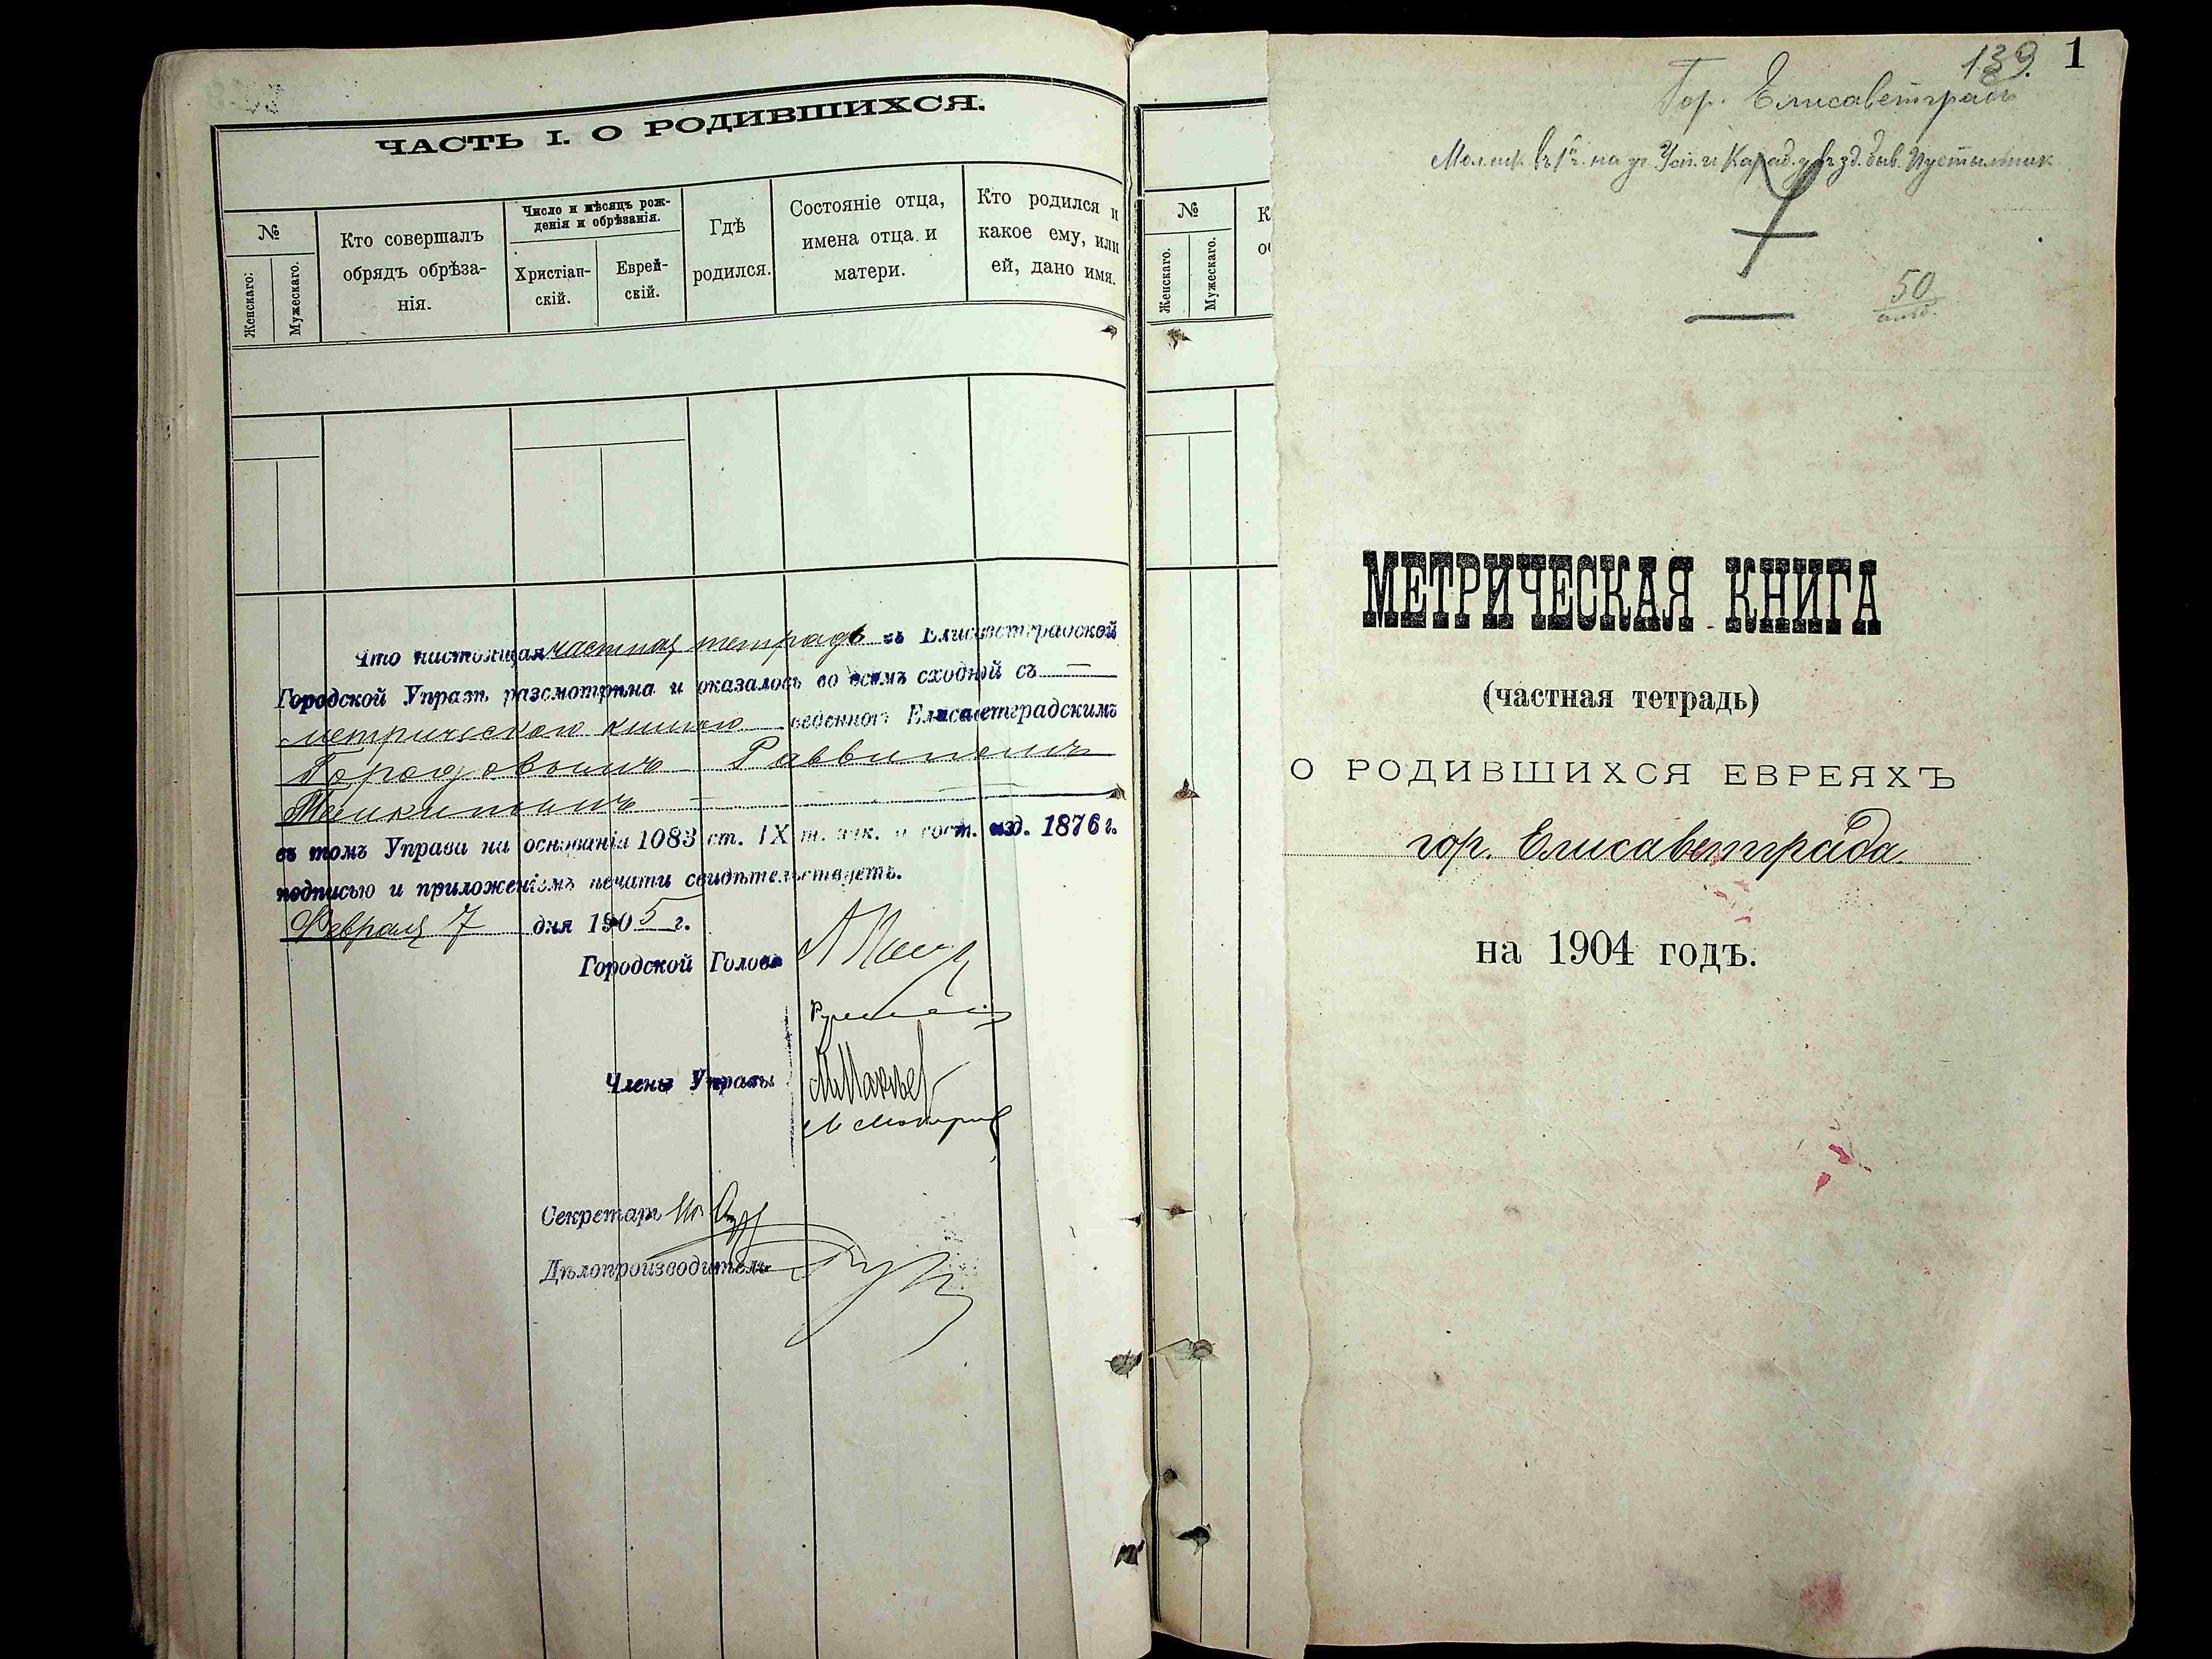 ЧАСТЬ I. О РОДИВШИХСЯ.
№
Женскаго.
Мужескаго.
Кто совершалъ
обрядъ обрѣза-
нія.
Число и мѣсяцъ рож-
денія и обрѣзанія.
Христіан-
скій.
Еврей-
скій.
Гдѣ
родился.
Состояніе отца,
имена отца и
матери.
Кто родился и
какое ему, или
ей, дано имя.
Что настоящая частная тетрадь въ Елисаветградской
Городской Управѣ разсмотрѣна и оказалось во всемъ сходной съ
метрическою книгою веденною Елисаветградскимъ
Городовымъ Раввиномъ
въ томъ Управа на основаніи 1083 ст. IX т. зак. о сост. изд. 1876 г.
подписью и приложеніемъ печати свидѣтельствуетъ.
Февраля 7 дня 1905 г.
Городской Голова
Члены Управы
Секретарь
Дѣлопроизводитель
№
Женскаго.
Мужескаго.
К
139. 1
Гор. Елисаветградъ
на уг. Усп. и Карад. у въ зд. быв. Пустильник
50
МЕТРИЧЕСКАЯ КНИГА
(частная тетрадь)
О РОДИВШИХСЯ ЕВРЕЯХЪ
гор. Елисаветграда
на 1904 годъ.